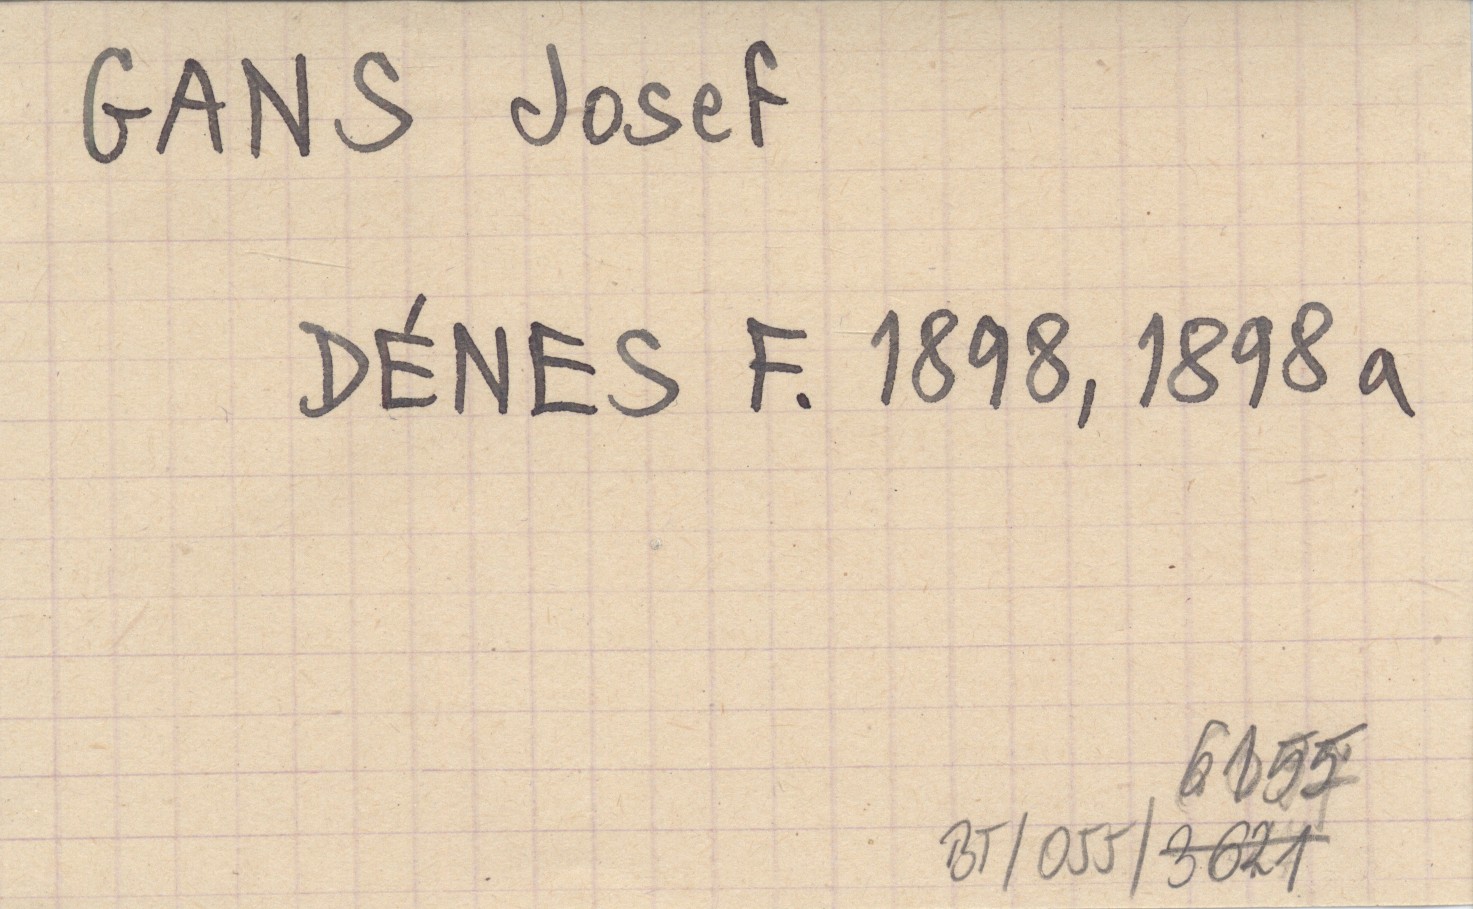 GANS Josef
DÉNES F. 1898, 1898 a
6155
BT/055/3621